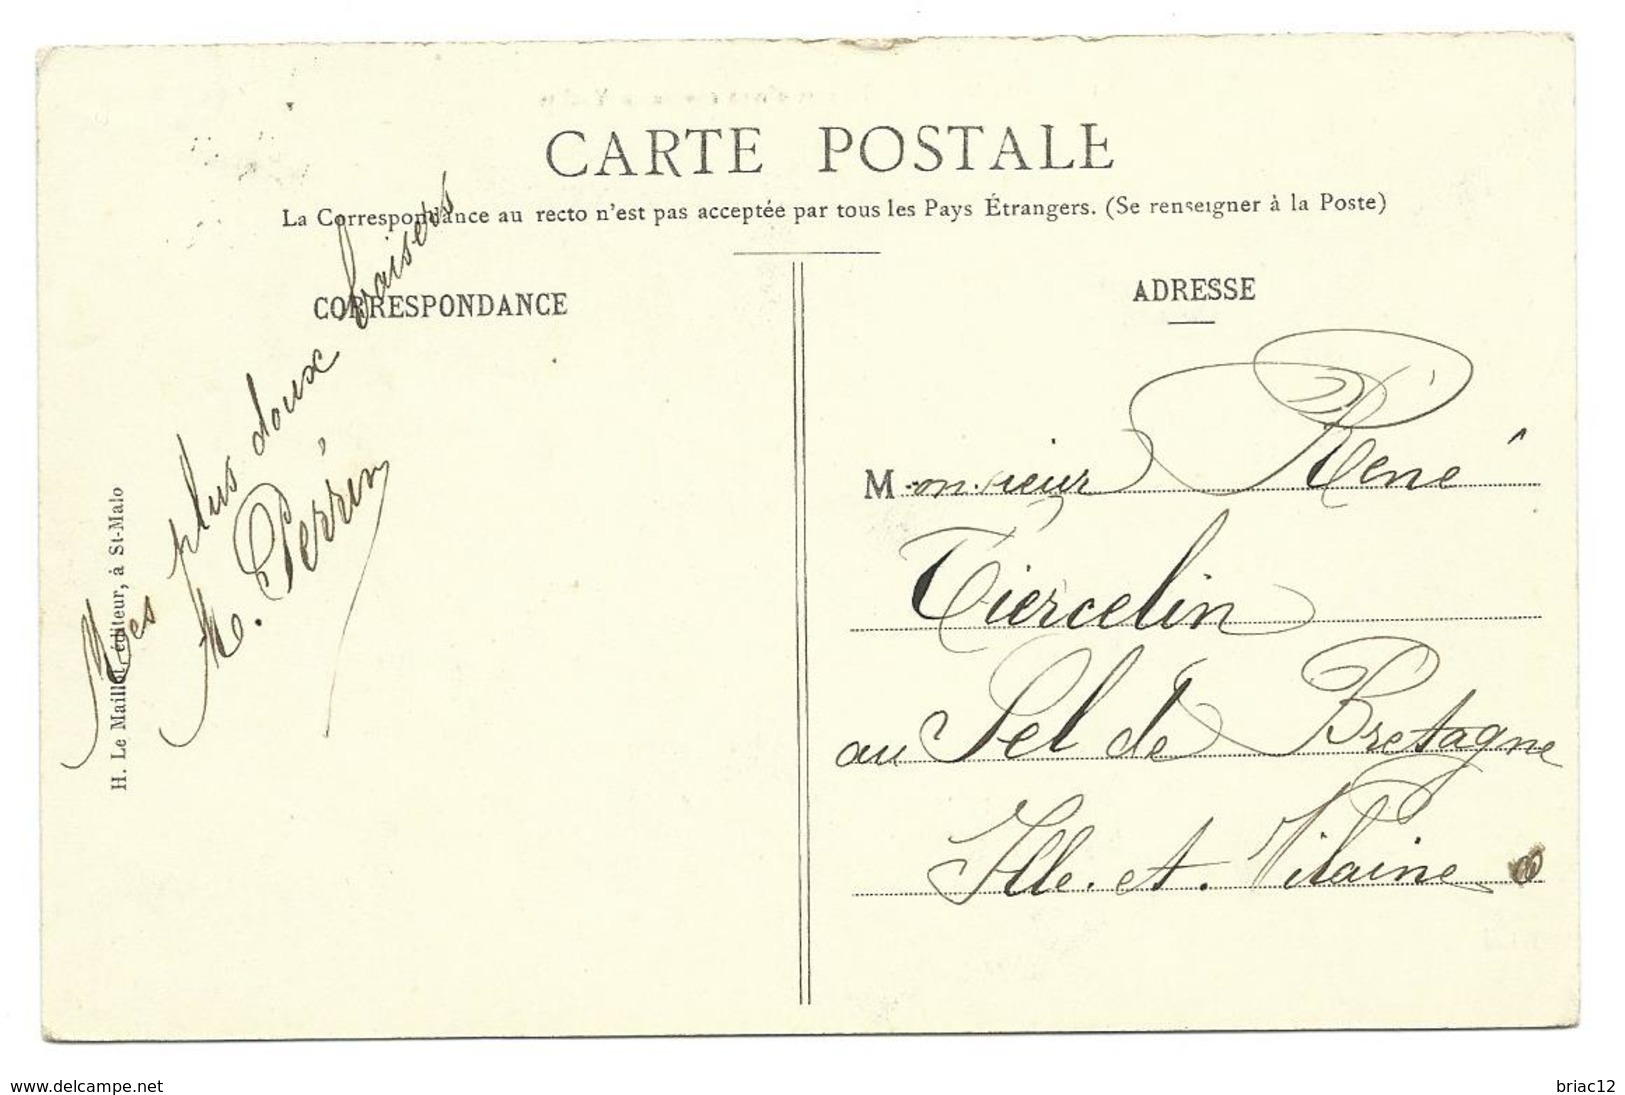 CARTE POSTALE
La Correspondance au recto n'est pas acceptée par tous les Pays Étrangers. (Se renseigner à la Poste)
CORRESPONDANCE
Mes plus doux baisers
M. Perrin
H. Le Maillot, éditeur, à St-Malo
ADRESSE
Monsieur René
Tiercelin
au Sel de Bretagne
Ille-et-Vilaine
www.delcampe.net
briac12